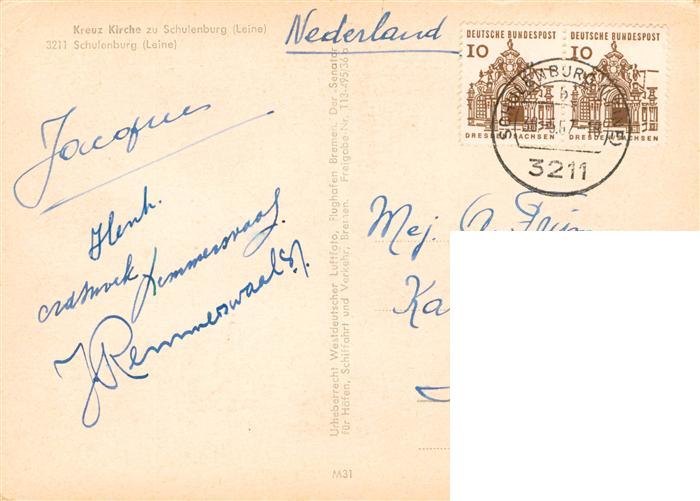 Kreuz Kirche zu Schulenburg (Leine)
3211 Schulenburg (Leine)
Nederland
DEUTSCHE BUNDESPOST
10
DRESDEN SACHSEN
DEUTSCHE BUNDESPOST
10
DRESDEN SACHSEN
3211
Jacques
Henk.
J. Remmerswaal Sr.
Mej. A.
Ka
Urheberrecht Westdeutscher Luftfoto, Flughafen Bremen. Der Senator
für Häfen, Schiffahrt und Verkehr, Bremen. Freigabe Nr. 113-495/36a
M31